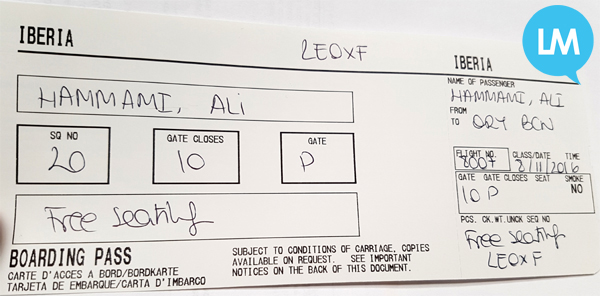 LM
IBERIA
LEOXF
HAMMAMI, ALI
SQ NO
20
GATE CLOSES
10
GATE
P
Free seating
BOARDING PASS
CARTE D'ACCES A BORD/BORDKARTE
TARJETA DE EMBARQUE/CARTA D'IMBARCO
SUBJECT TO CONDITIONS OF CARRIAGE, COPIES
AVAILABLE ON REQUEST. SEE IMPORTANT
NOTICES ON THE BACK OF THIS DOCUMENT.
IBERIA
NAME OF PASSENGER
HAMMAMI, ALI
FROM
TO ORY BCN
FLIGHT NO. CLASS/DATE TIME
8007 8/11/2016
GATE GATE CLOSES SEAT SMOKE
10 P NO
PCS. CK.WT. UNCK SEQ NO
Free seating
LEOXF